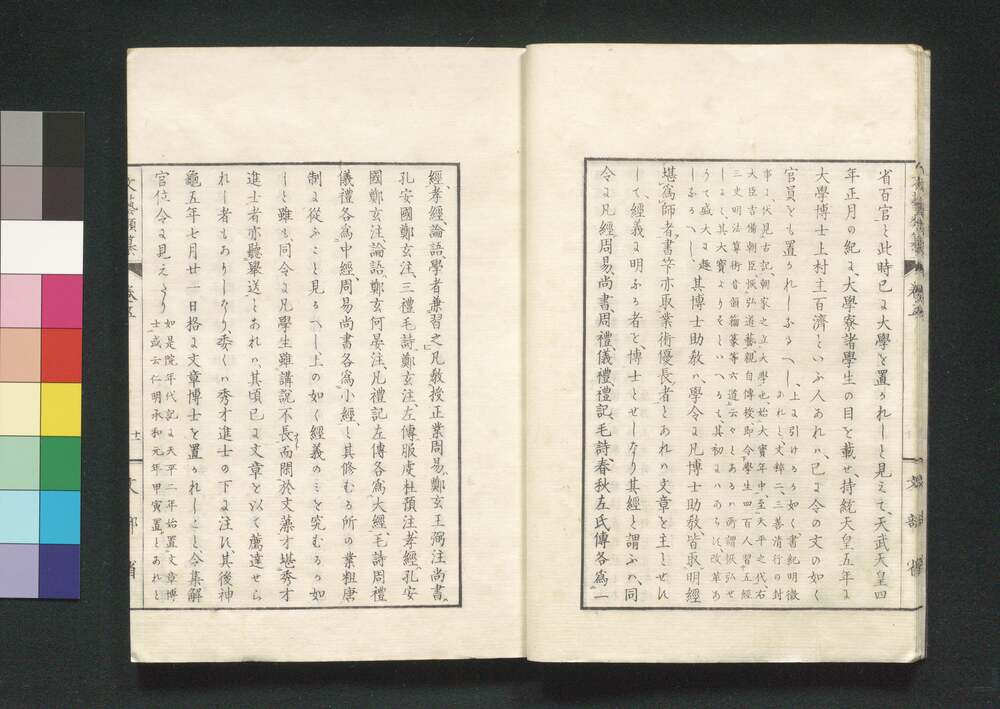 省百官と此時已に大學を置かれしと見えて、天武天皇四
年正月の紀に、大學寮諸學生の目を載せ、持統天皇五年に
大學博士上村主百濟といふ人あれハ、已に令の文の如く
官員をも置かれしなるへし、上に引ける如く、書紀明徴
あれと、文粹二、三善清行の封
事に、伏見古記、朝家之立大學也、始大寶年中、至天平之代、右
大臣吉備朝臣、恢弘道藝、親自傳授、即令學生四百人、習五經
三史明法算術音韻籀篆等六道云々とあるハ、所謂恢弘せ
しにて、其大寶よりといへるも其初にハあらし、改革あ
りて盛大に趣
しなるへし、其博士助敎ハ、學令に凡博士助敎、皆取明經
堪爲師者、書竿亦取業術優長者とあれハ文章を主とせす
して、經義に明ふる者を、博士とせしなり其經と謂ふハ、同
令に凡經周易、尚書、周禮、儀禮、禮記、毛詩、春秋左氏傳、各爲一
經、孝經論語、學者兼習之、凡敎授正業、周易鄭玄王弼注、尚書、
孔安國鄭玄注、三禮毛詩鄭玄注、左傳服虔杜預注、孝經孔安
國鄭玄注、論語鄭玄何晏注、凡禮記左傳各爲大經、毛詩周禮
儀禮各爲中經、周易尚書各爲小經、と其修むる所の業粗唐
制に從ふこと見るへし上の如く經義のミを究むるか如
しと雖も同令に凡學生雖講説不長、而閑於文藻、才堪秀才
進士者、亦聽擧送とあれハ、其頃已に文章を以て薦達せら
れし者もありしなり、委くハ秀才進士の下に注す、其後神
龜五年七月廿一日格に文章博士を置かれしこと、令集解
官位令に見えたり
如是院年代記に天平二年始置文章博
士或云仁明承和元年甲寅置とあれと
文藝類纂 卷五
十二
文部省